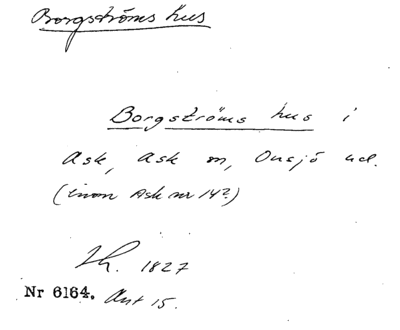 Borgströms hus
Borgströms hus i
Ask, Ask sn, Onsjö hd.
(inom Ask nr 14?)
Lh. 1827
Nr 6164. Ant 15.